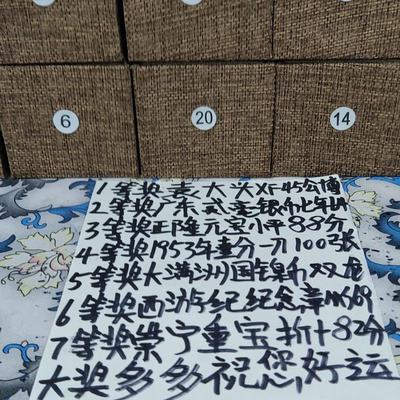 6
20
14
1等奖袁大头XF45公博
2等奖广东贰毫银币七年
3等奖正隆元宝小平88分
4等奖1953年壹分一刀100张
5等奖大满洲国镍币双龙
6等奖西游纪纪念章MS69
7等奖崇宁重宝折十82分
大奖多多祝您好运